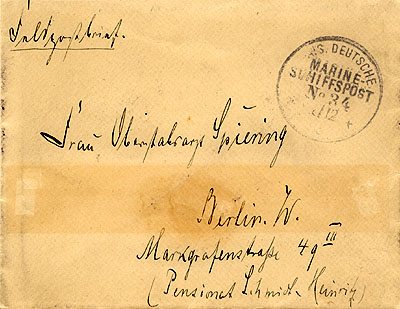 Feldpostbrief.
K.S. DEUTSCHE
MARINE-
SCHIFFSPOST
No 34
/12
Frau Oberstabsarzt Spiering
Berlin. W.
Markgrafenstraße 49 III
(Pensionat Schmidt-Heinritz)